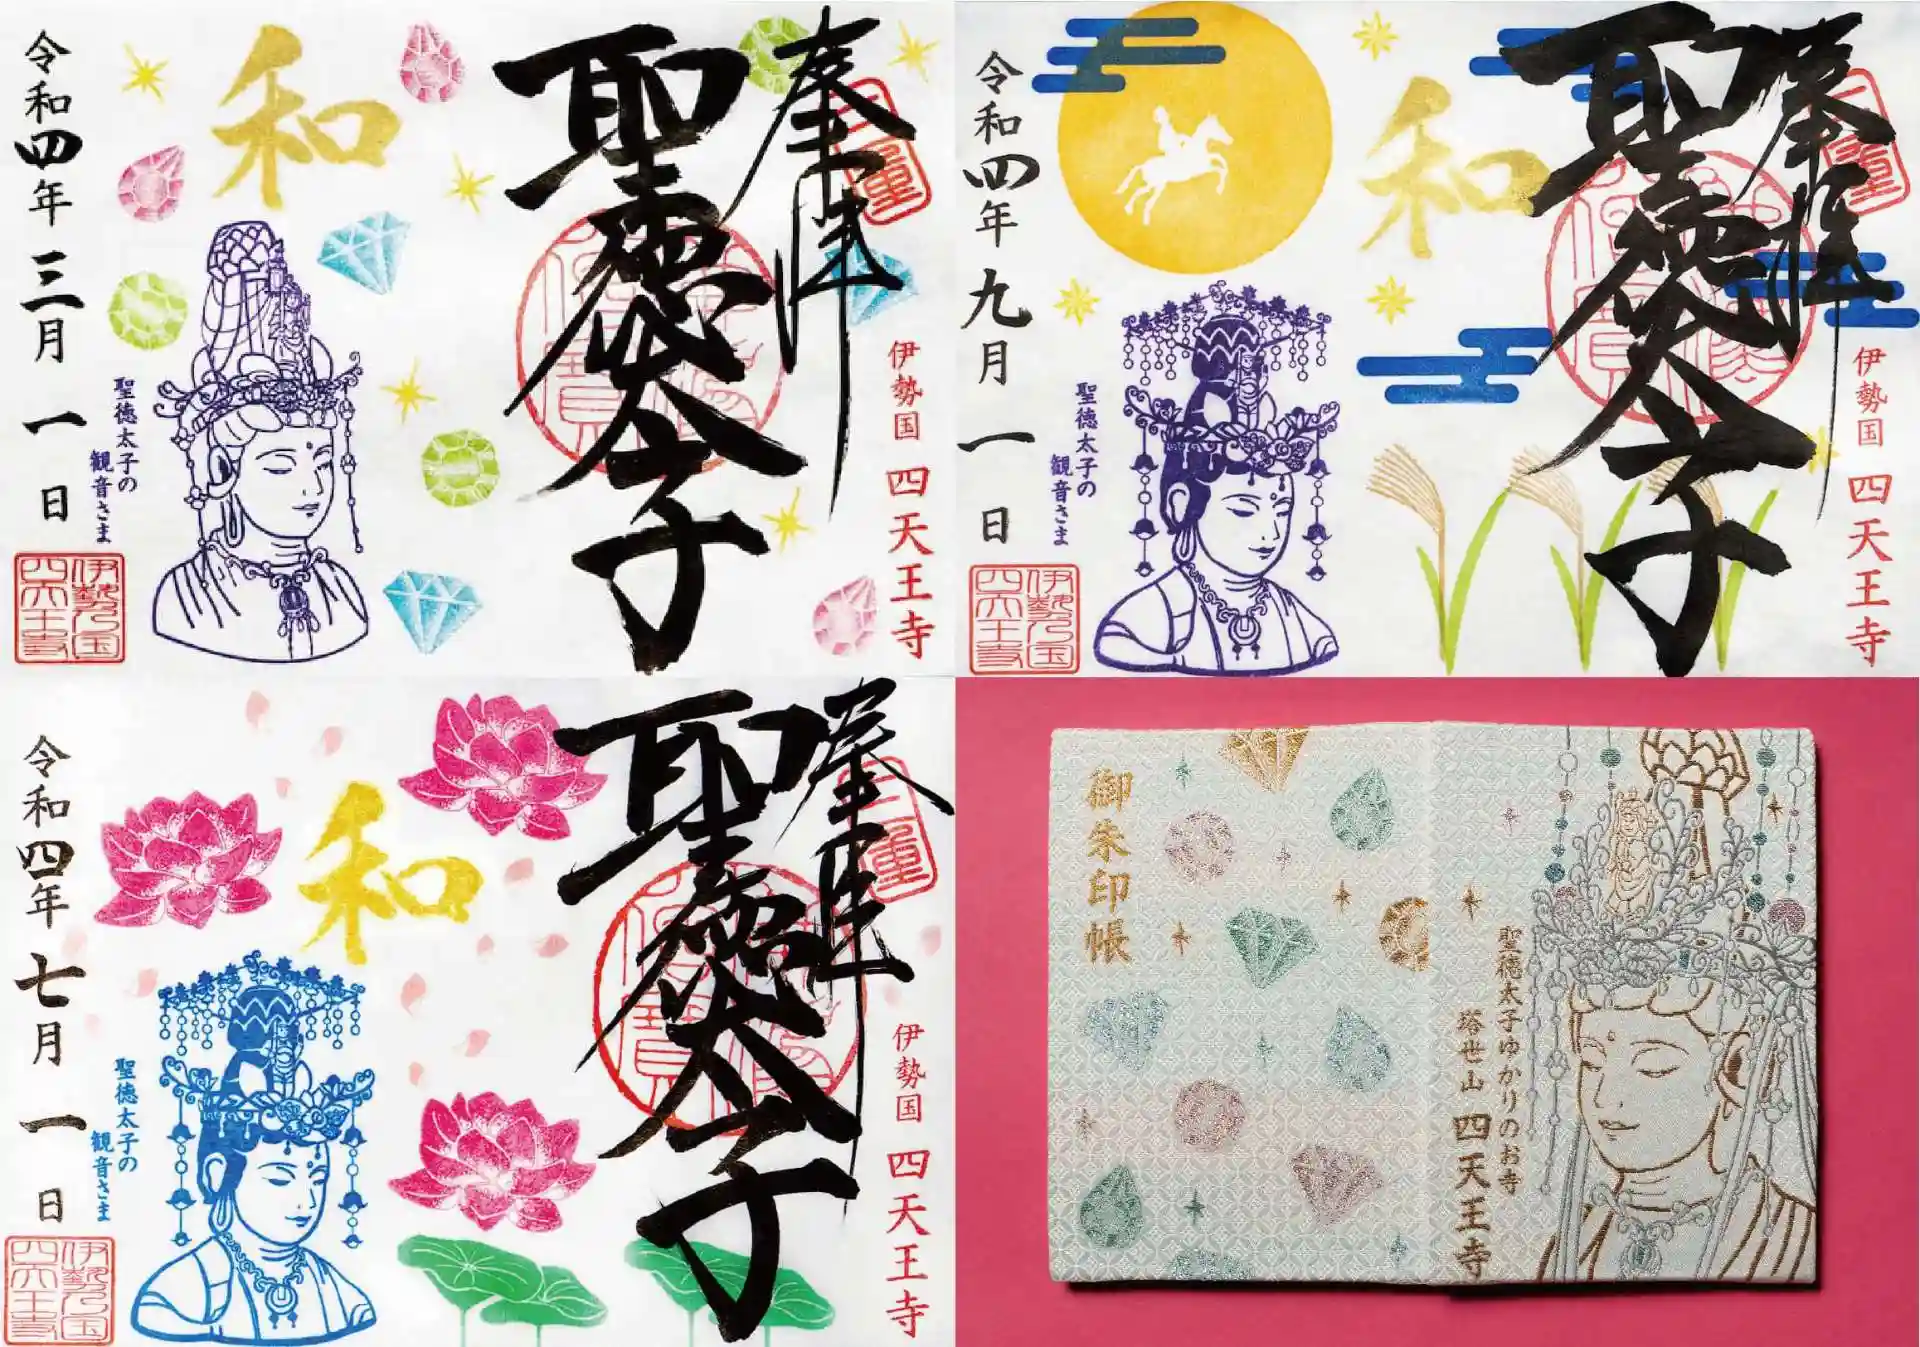 奉拝
聖徳太子
和
伊勢国 四天王寺
聖徳太子の
観音さま
令和四年三月一日
伊勢乃国
四天王寺
奉拝
聖徳太子
和
伊勢国 四天王寺
聖徳太子の
観音さま
令和四年九月一日
伊勢乃国
四天王寺
奉拝
聖徳太子
和
伊勢国 四天王寺
聖徳太子の
観音さま
令和四年七月一日
伊勢乃国
四天王寺
聖徳太子ゆかりのお寺
塔世山 四天王寺
御朱印帳